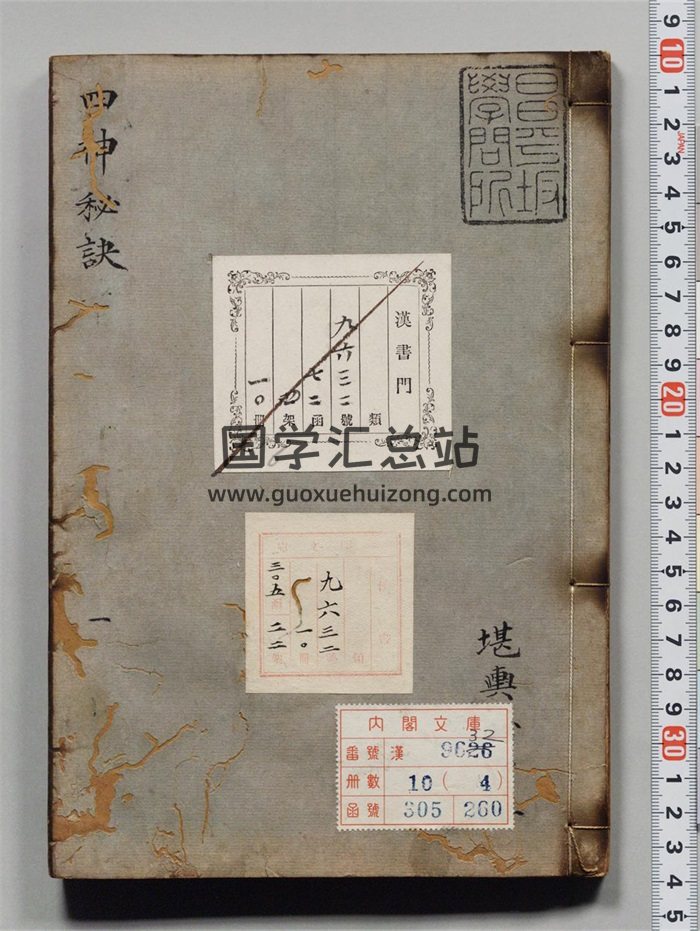 四神秘訣
一
昌平坂
學問所
漢書門
類
九六三二號
七二函
架
一〇冊
国学汇总站
www.guoxuehuizong.com
九六三二
一〇
三〇五
二六〇
堪輿
内閣文庫
番號 漢 9626
32
冊數 10 ( 4 )
函號 305 260
9
10
1
2
3
JAPAN
4
5
6
7
8
9
20
1
2
3
4
5
6
7
8
9
30
1
2
3
4
5